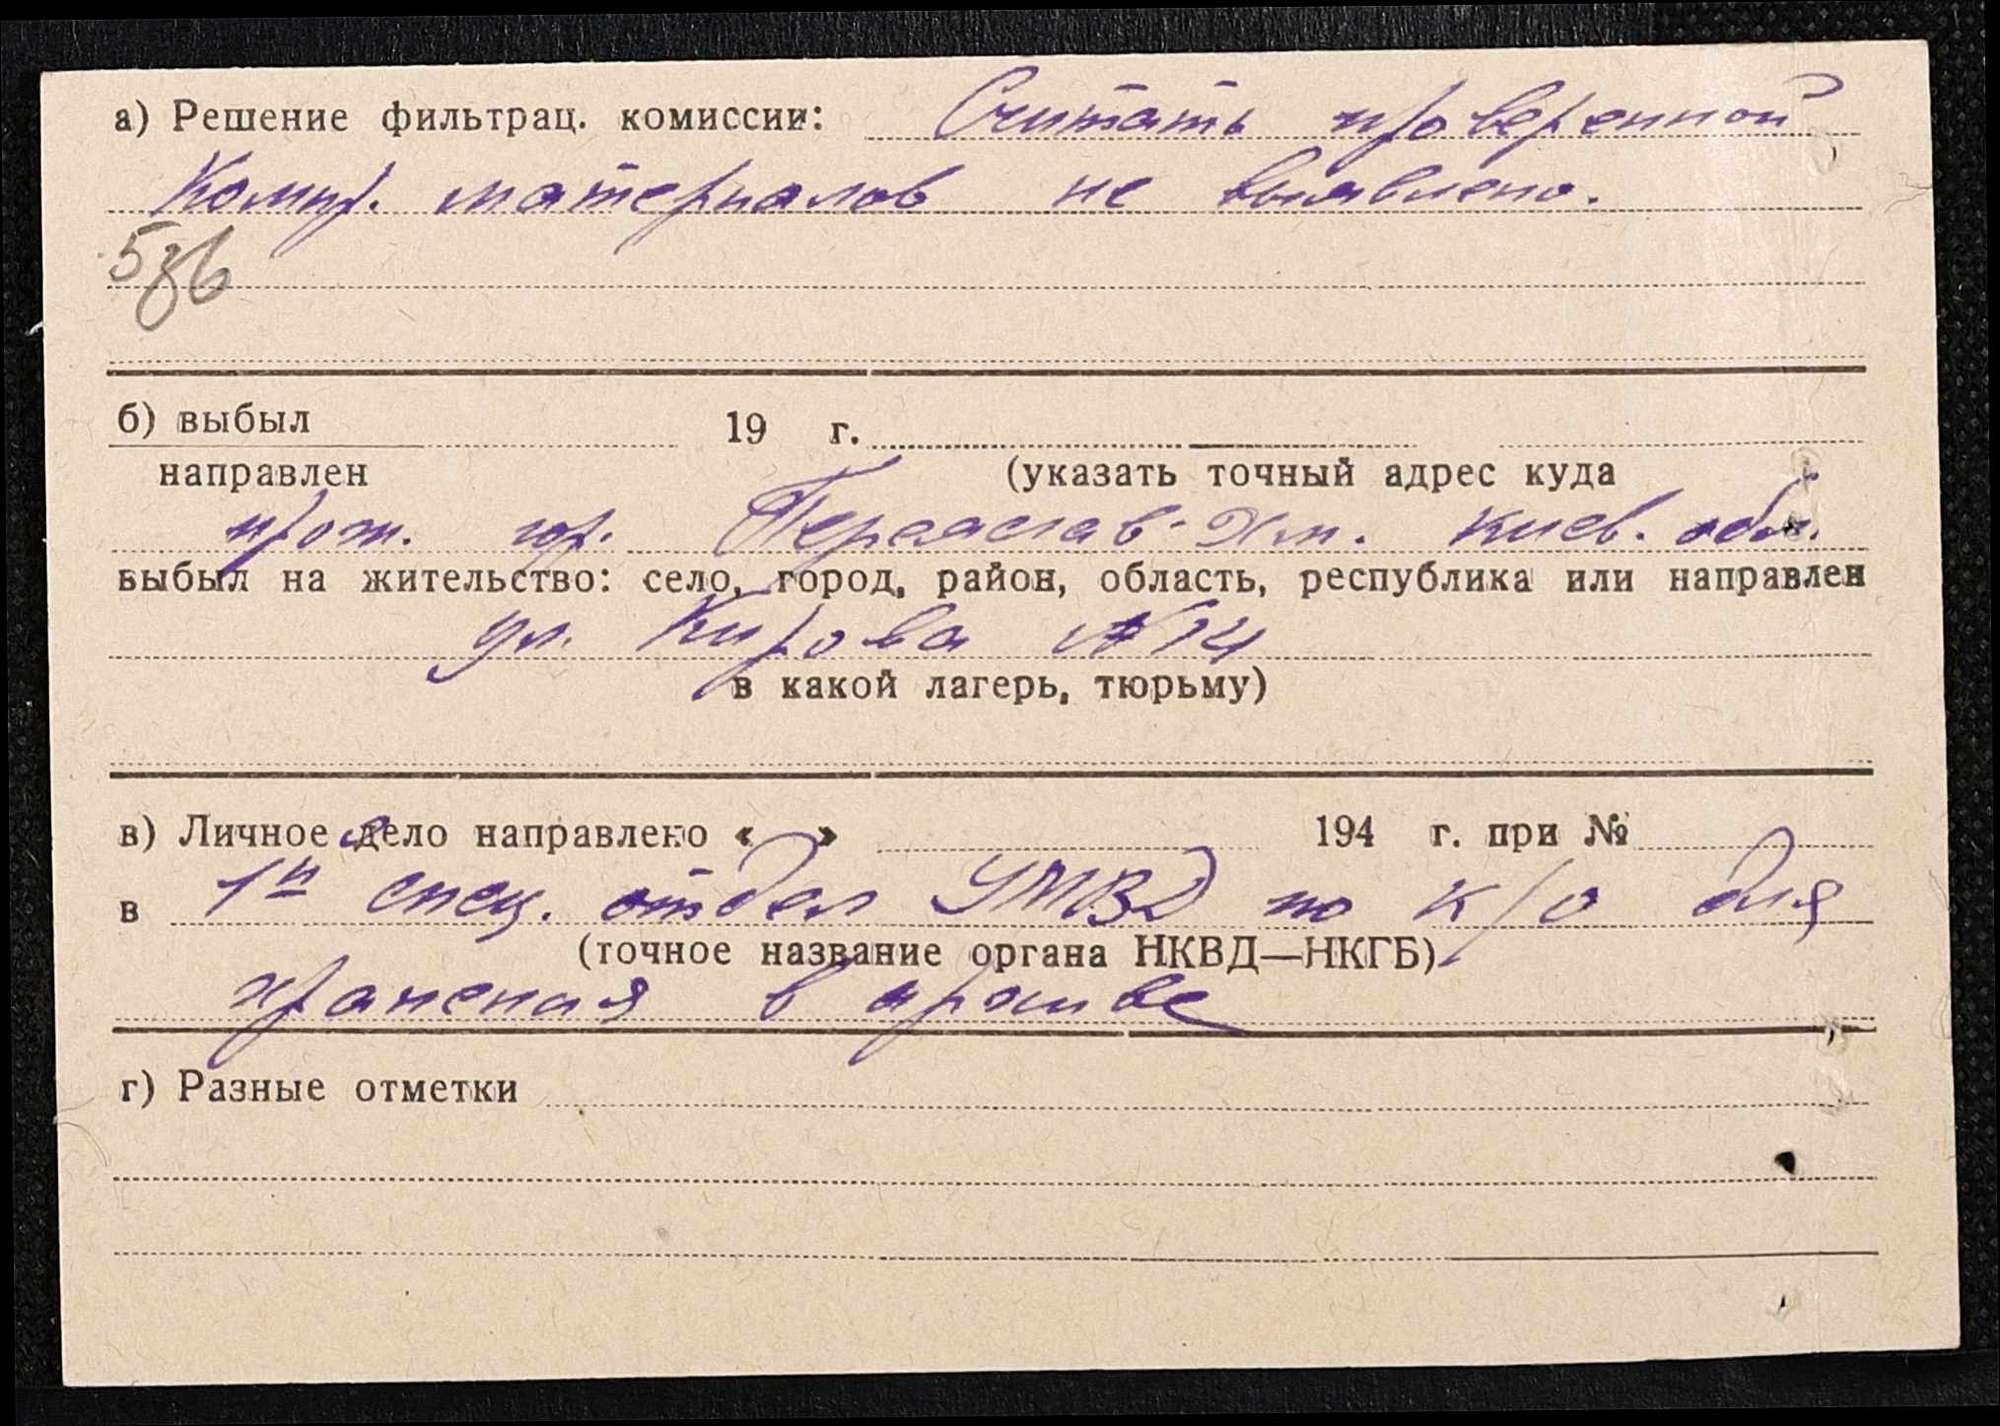 а) Решение фильтрац. комиссии: Считать проверенной
Компр. материалов не выявлено.
586
б) выбыл 19 г.
направлен (указать точный адрес куда
прож. гор. Переяслав-Хм. Киев. обл.
выбыл на жительство: село, город, район, область, республика или направлен
ул. Кирова №14
в какой лагерь, тюрьму)
в) Личное дело направлено « » 194 г. при №
в 1й спец. отдел УМВД по к/о для
(точное название органа НКВД—НКГБ)
хранения в архиве
г) Разные отметки